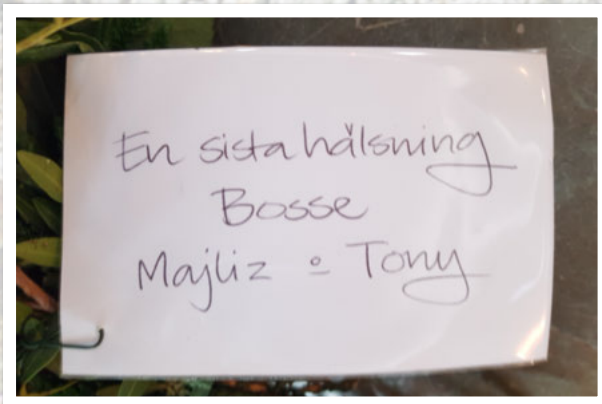 En sista hälsning
Bosse
Majliz o Tony